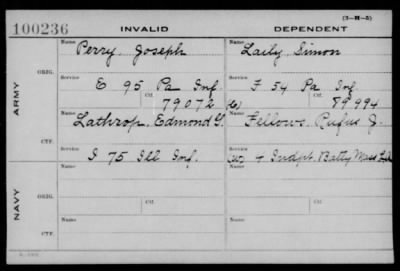 (3-H-5)
100236 INVALID DEPENDENT
Name Name
Perry, Joseph Laily, Simon
ARMY
ORIG.
Service Service
E 95 Pa Inf. F 54 Pa Inf
Ctf. 79072 Ctf. 89994
Name Name
Lathrop, Edmond G. Fellows, Rufus J.
CTF.
Service Service
I 75 Ill Inf. 4 Indpt. Batty Mass
NAVY
ORIG.
Name Name
Service Ctf. Service Ctf.
Name Name
CTF.
Service Service